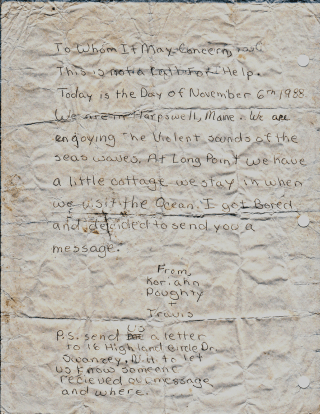 To Whom It May Concern,
This is not a Call for Help.
Today is the Day of November 6th 1988
We are in Harpswell, Maine. We are
enjoying the Vielent sounds of the
seas waves. At Long Point we have
a little cottage we stay in when
we visit the Ocean. I got Bored
and decided to send you a
message.
From
Kori-ahn
Doughty
+
Travis
P.S. send us a letter
to 18 Highland Circle Dr.
Swanzey, N.H. to let
us know someone
recieved our message
and where.